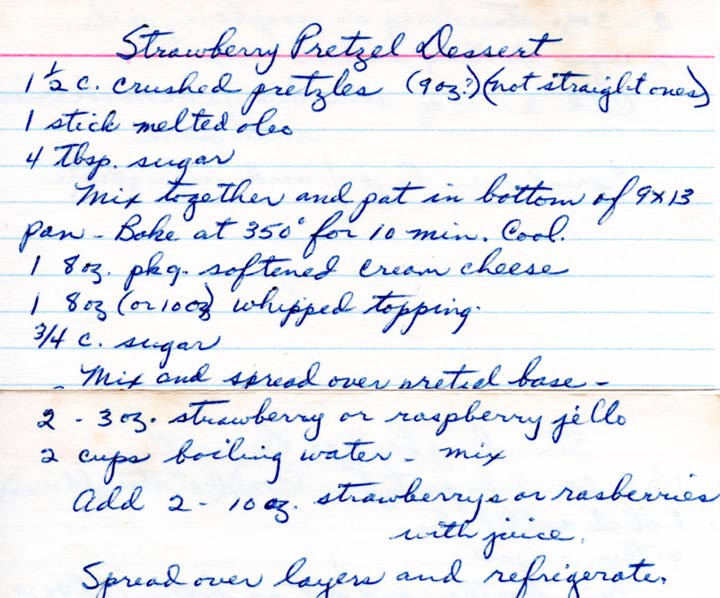 Strawberry Pretzel Dessert
1 ½ c. crushed pretzles (9 oz?) (not straight ones)
1 stick melted oleo
4 Tbsp. sugar
Mix together and pat in bottom of 9x13
pan - Bake at 350° for 10 min. Cool.
1 8oz. pkg. softened cream cheese
1 8oz (or 10 oz) whipped topping.
3/4 c. sugar
- Mix and spread over pretzel base -
2 - 3 oz. strawberry or raspberry jello
2 cups boiling water - mix
Add 2 - 10 oz. strawberrys or rasberries
with juice.
Spread over layers and refrigerate.